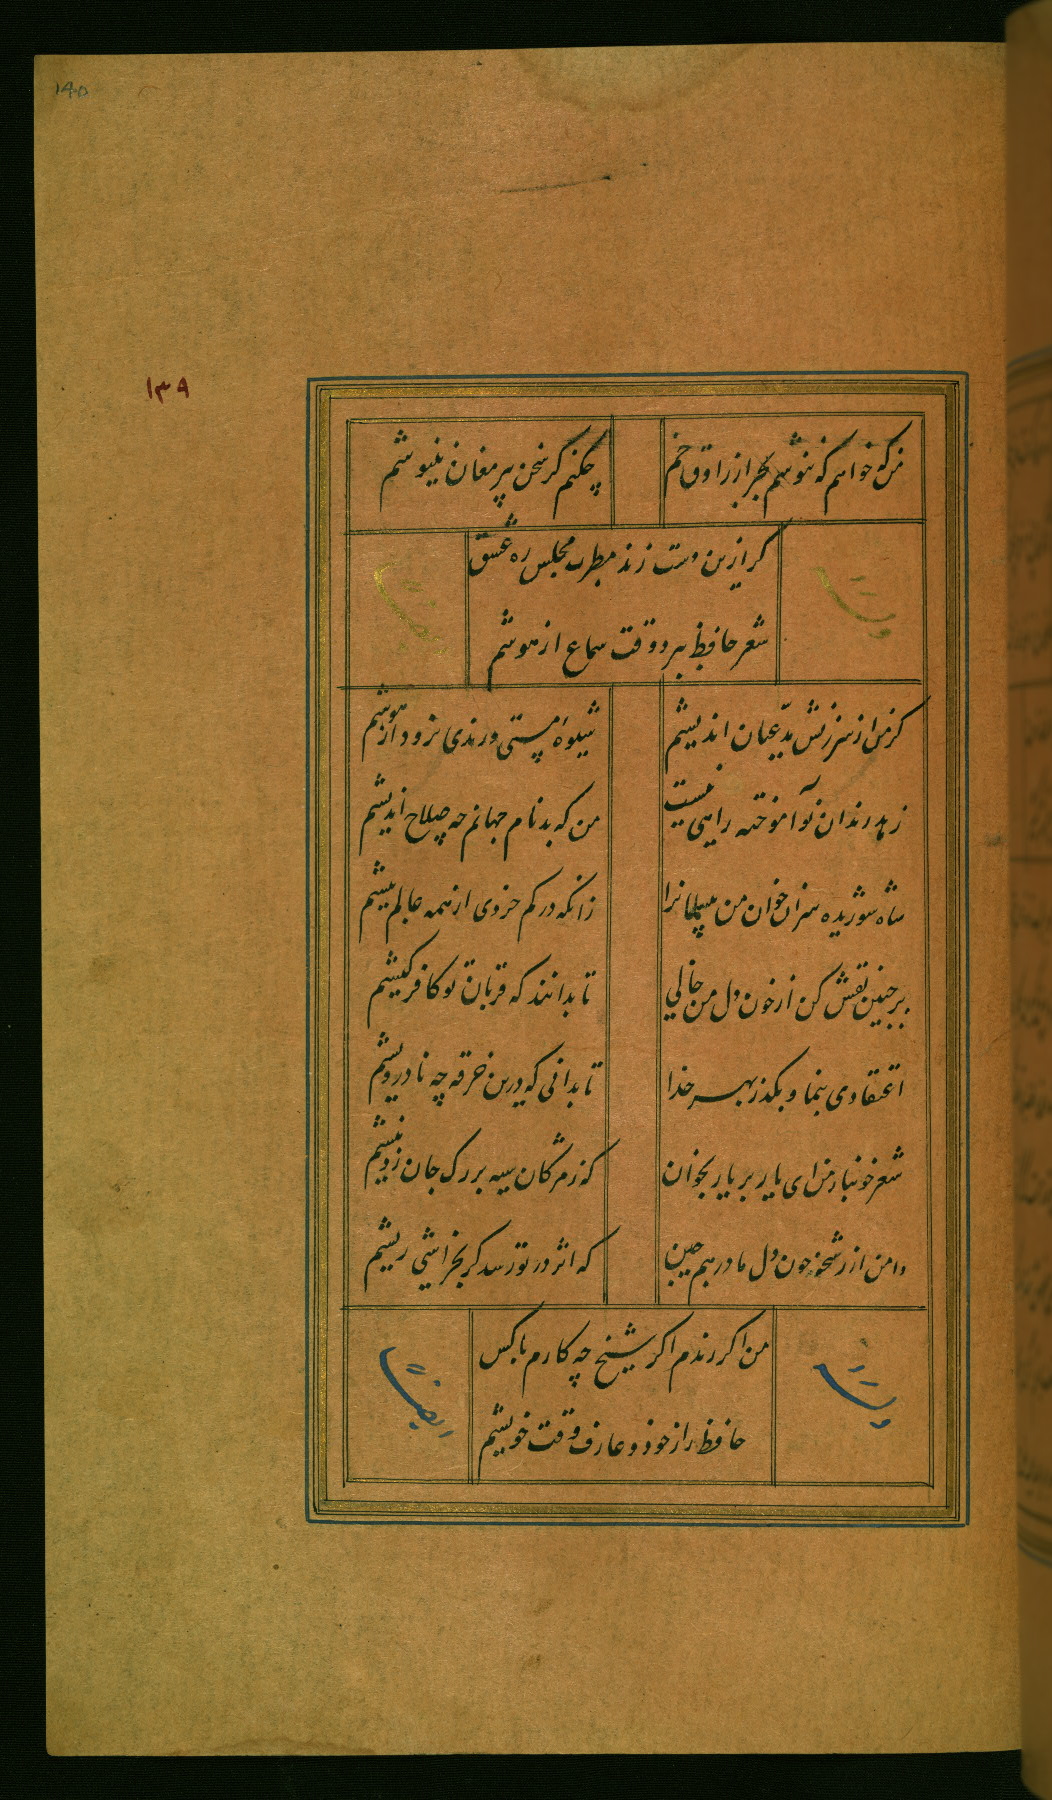 ۱۴۵
۱۳۹
من که خواهم که ننوشم بجز از راوق خم
چکنم گر سخن پیر مغان ننیوشم
گر ازین دست زند مطرب مجلس ره عشق
شعر حافظ ببرد وقت سماع از هوشم
وله
ایضا
گر من از سرزنش مدعیان اندیشم
شیوه مستی و رندی نرود از پیشم
زهد رندان نوآموخته راهی نیست
من که بدنام جهانم چه صلاح اندیشم
شاه شوریده سران خوان من بیسامانرا
زانکه در کم خردی از همه عالم بیشم
بر جبین نقش کن از خون دل من خالی
تا بدانند که قربان تو کافر کیشم
اعتقادی بنما و بگذر بهر خدا
تا بدانی که درین خرقه چه نادرویشم
شعر خونبار من ای یار بر یار بخوان
که ز مژگان سیه بر رگ جان زد نیشم
دامن از رشحه خون دل ما در هم چین
که اثر در تو رسد گر بخراشی ریشم
من اگر رندم اگر شیخ چه کارم با کس
حافظ راز خود و عارف وقت خویشم
وله
ایضا